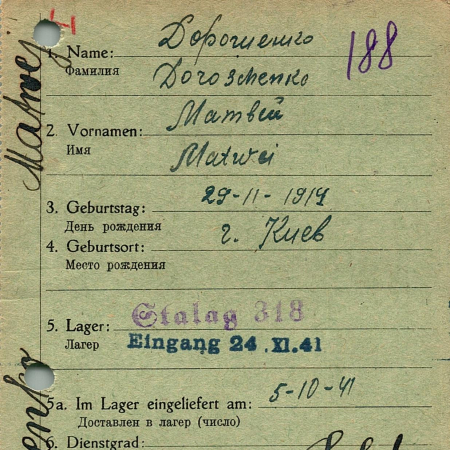 188
Matwej
1. Name: Дорошенко
Фамилия Doroschenko
2. Vornamen: Матвей
Имя Matwei
3. Geburtstag: 29-11-1914
День рождения
4. Geburtsort: г. Киев
Место рождения
5. Lager: Stalag 318
Лагер Eingang 24.XI.41
5a. Im Lager eingeliefert am: 5-10-41
Доставлен в лагер (число)
6. Dienstgrad:
enko